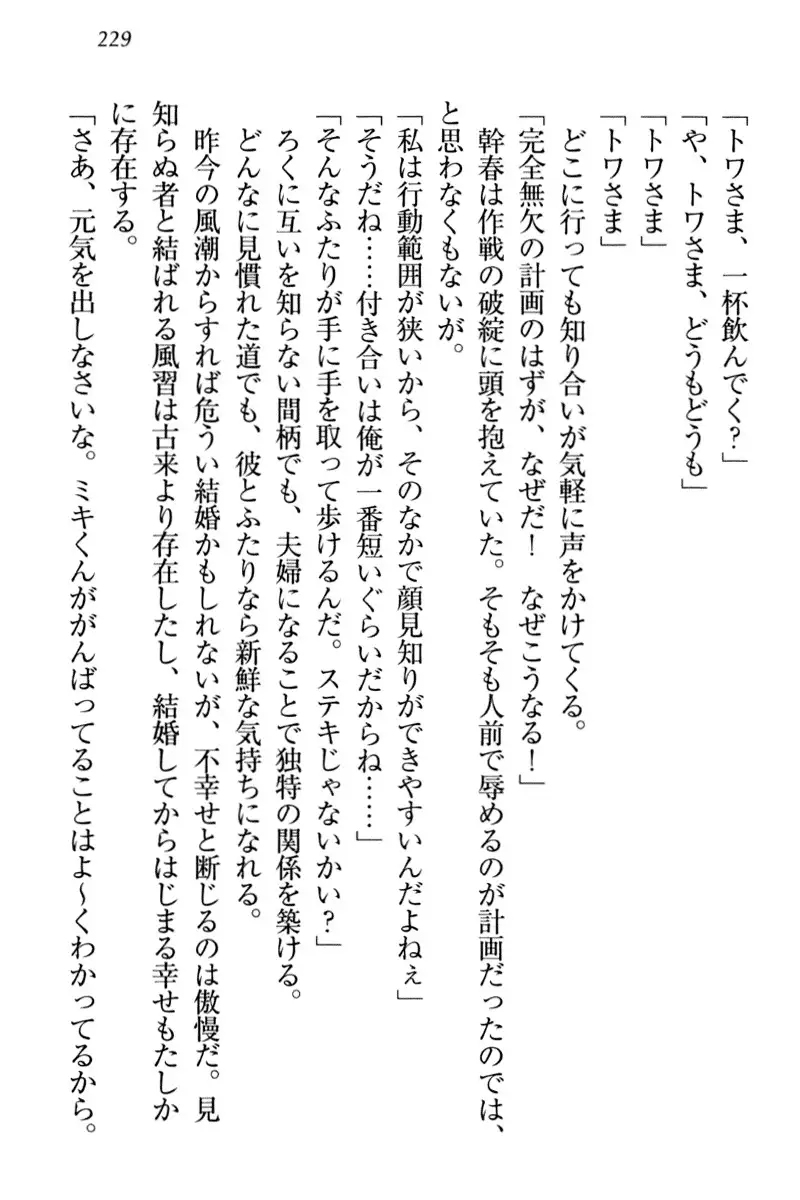 229
「トワさま、一杯飲んでく？」
「や、トワさま、どうもどうも」
「トワさま」
「トワさま」
どこに行っても知り合いが気軽に声をかけてくる。
「完全無欠の計画のはずが、なぜだ！　なぜこうなる！」
幹春は作戦の破綻に頭を抱えていた。そもそも人前で辱めるのが計画だったのでは、
と思わなくもないが。
「私は行動範囲が狭いから、そのなかで顔見知りができやすいんだよねぇ」
「そうだね……付き合いは俺が一番短いぐらいだからね……」
「そんなふたりが手に手を取って歩けるんだ。ステキじゃないかい？」
ろくに互いを知らない間柄でも、夫婦になることで独特の関係を築ける。
どんなに見慣れた道でも、彼とふたりなら新鮮な気持ちになれる。
昨今の風潮からすれば危うい結婚かもしれないが、不幸せと断じるのは傲慢だ。見
知らぬ者と結ばれる風習は古来より存在したし、結婚してからはじまる幸せもたしか
に存在する。
「さあ、元気を出しなさいな。ミキくんががんばってることはよ～くわかってるから。